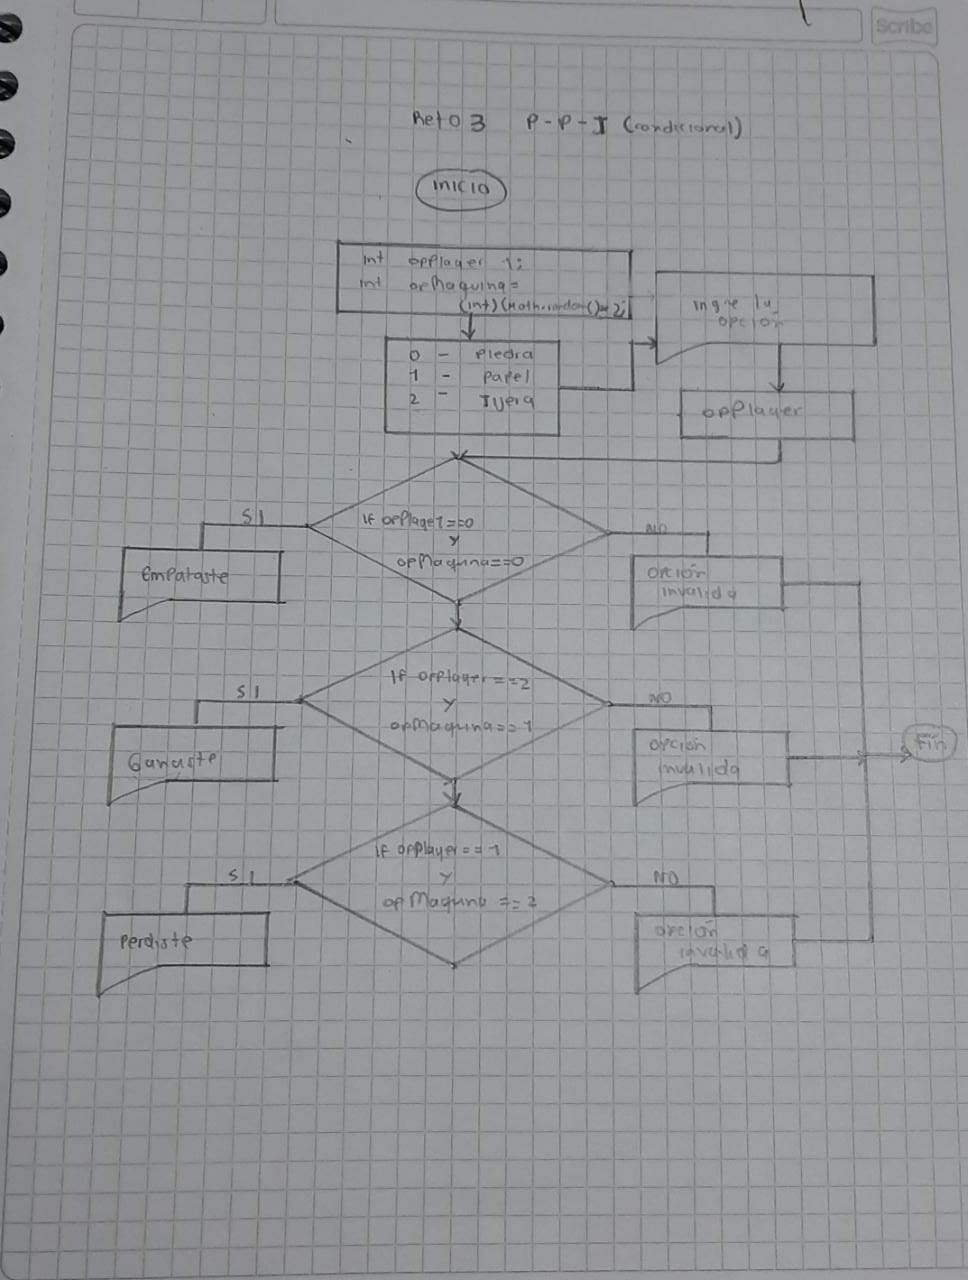 Scribe
Reto 3 P-P-T (condicional)
inicio
int opPlayer 1;
int opMaquina=
(int)(Math.random()*2;
0 - Piedra
1 - Papel
2 - Tijera
ingre la
opción
opPlayer
If opPlayer1==0
Y
opMaquina==0
SI
NO
Empataste
opción
invalida
If opPlayer==2
Y
opMaquina==1
SI
NO
Ganaste
opción
invalida
Fin
if opPlayer==1
Y
opMaquina==2
SI
NO
Perdiste
opción
invalida